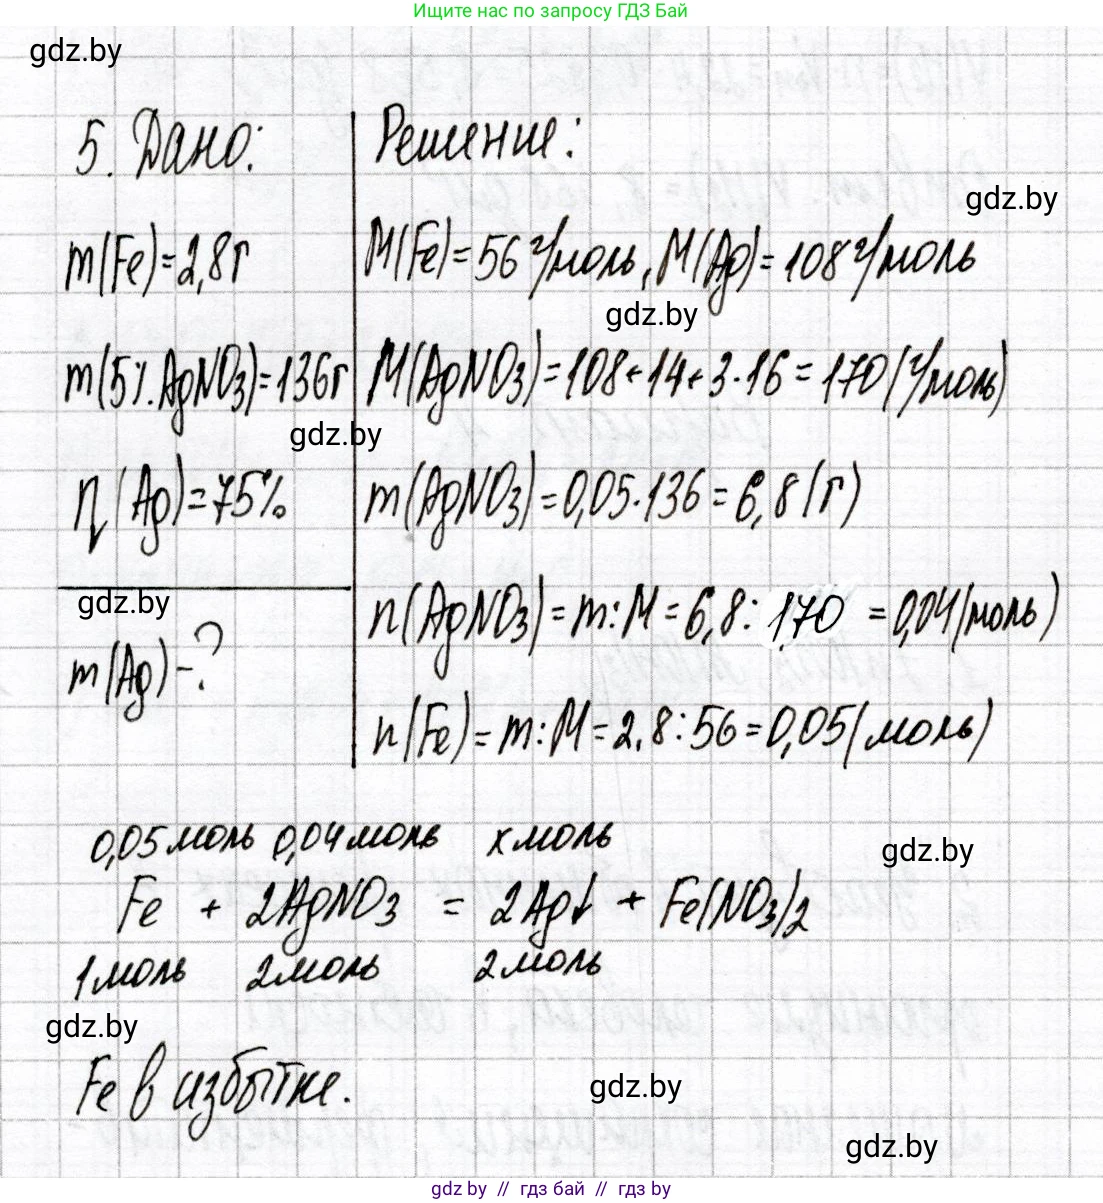 Ищите нас по запросу ГДЗ Бай
gdz.by
5. Дано:
Решение:
gdz.by
m(Fe)=2,8г
M(Fe)=56 г/моль, M(Ag)=108 г/моль
gdz.by
m(5%.AgNO3)=136г
M(AgNO3)=108+14+3·16=170(г/моль)
gdz.by
η(Ag)=75%
m(AgNO3)=0,05·136=6,8(г)
gdz.by
n(AgNO3)=m:M=6,8:170=0,04(моль)
m(Ag)-?
n(Fe)=m:M=2,8:56=0,05(моль)
0,05моль 0,04моль х моль
gdz.by
Fe + 2AgNO3 = 2Ag↓ + Fe(NO3)2
1моль 2моль 2моль
gdz.by
Fe в избытке.
gdz.by
gdz.by
gdz.by // гдз бай // гдз by